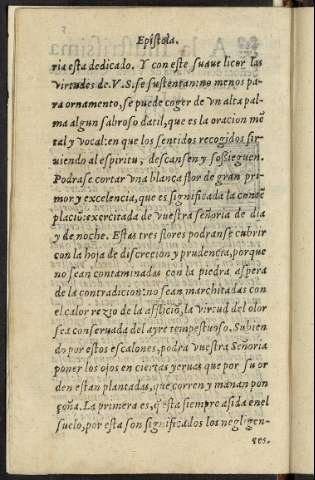 Epistola.
ria esta dedicado. Y con este suaue licor las
virtudes de.V.S.se sustentan: no menos pa
ra ornamento, se puede coger de vn alta pal-
ma algun sabroso datil, que es la oracion mē
tal y vocal: en que los sentidos recogidos sir-
uiendo al espiritu, descansen y sossieguen.
Podrase cortar vna blanca flor de gran pri-
mor y excelencia, que es significada la contē
placiō: exercitada de vuestra señoria de dia
y de noche. Estas tres flores podranse cubrir
con la hoja de discrecion y prudencia, porque
no sean contaminadas con la piedra aspera
de la contradicion: no sean marchitadas con
el calor rezio de la afflició, la virtud del olor
sea conseruada del ayre tempestuoso. Subien
do por estos escalones, podra vuestra Señoria
poner los ojos en ciertas yeruas que por su or
den estan plantadas, que corren y manan pon
çoña. La primera es, q̄ esta siempre asida en el
suelo, por esta son significados los negligen-
tes.